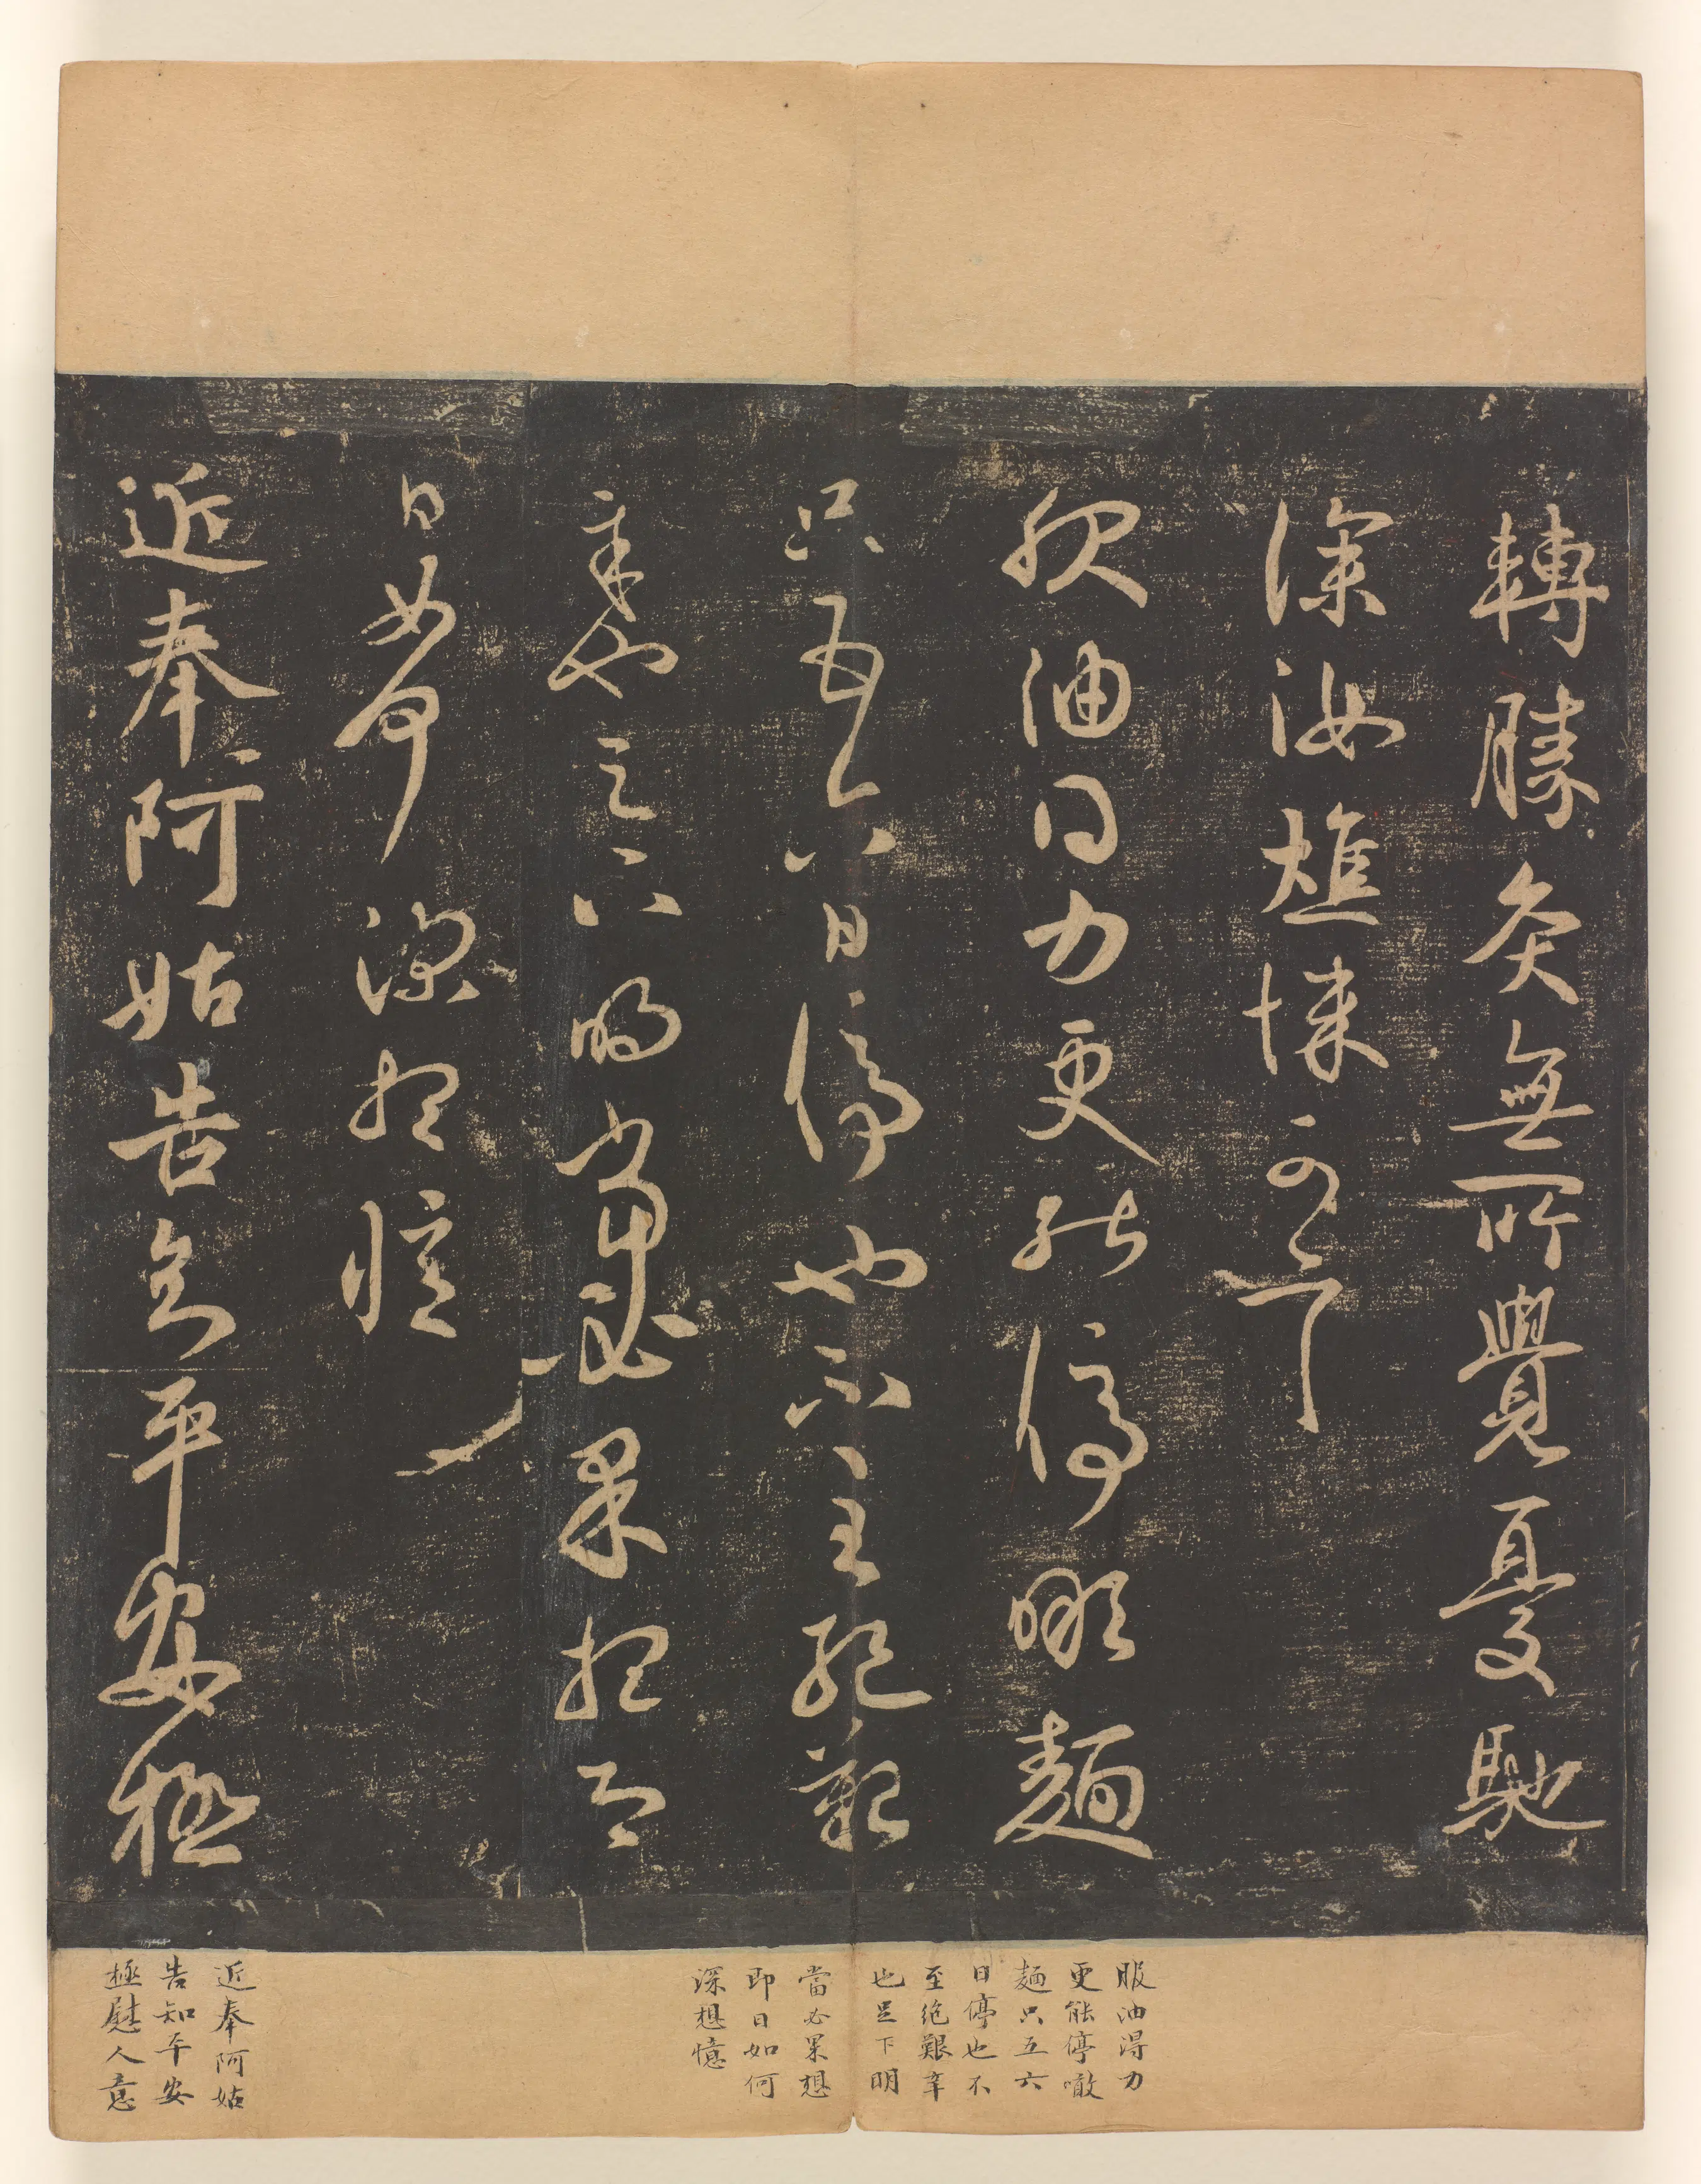 轉勝灸無所覺憂馳
深汝燋悚可言
服油得力更能停噉麵
只五六日停也不至絕艱
辛也足下明當必果想即
日如何深想憶
近奉阿姑告知平安極
服油得力
更能停噉
麵只五六
日停也不
至絕艱辛
也足下明
當必果想
即日如何
深想憶
近奉阿姑
告知平安
極慰人意